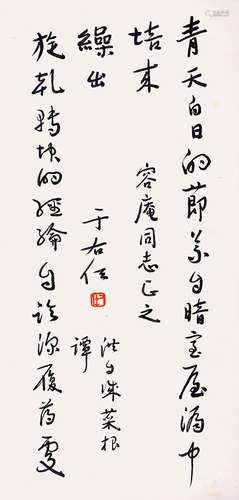 青天白日的節義自暗室屋漏中
培來
容庵同志正之
旋乾轉坤的經綸自臨深履薄處
繰出
于右任
洪自誠菜根
譚